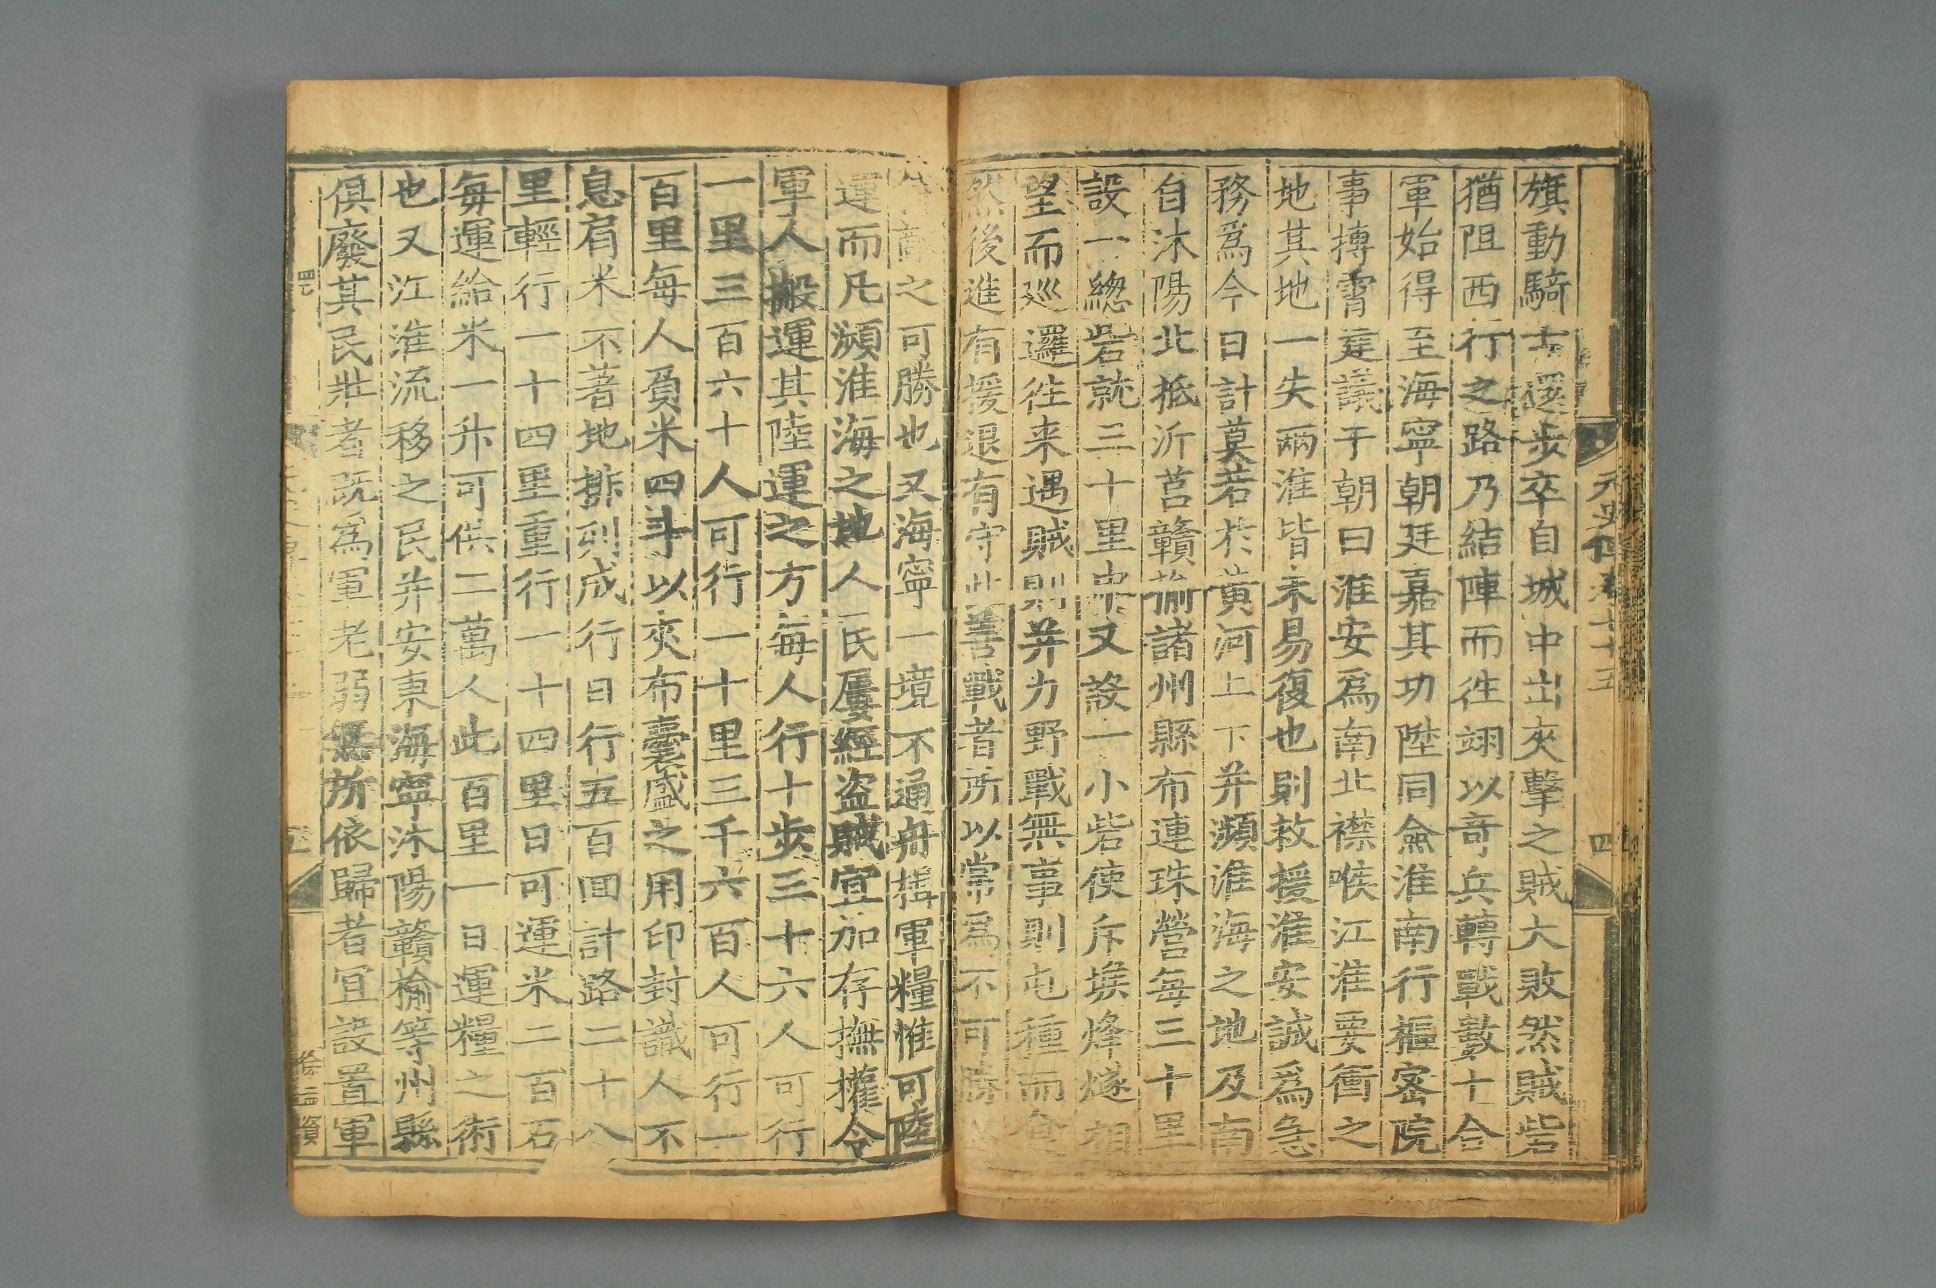 元史傳卷七十五
四
旗動騎士還步卒自城中出夾擊之賊大敗然賊砦
猶阻西行之路乃結陣而徃翊以竒兵轉戰數十合
軍始得至海寧朝廷嘉其功陞同僉淮南行樞密院
事摶霄建議于朝曰淮安爲南北襟喉江淮要衝之
地其地一失兩淮皆未易復也則救援淮安誠爲急
務爲今日計莫若於黄河上下并瀕淮海之地及南
自沐陽北抵沂莒贛揄諸州縣布連珠營每三十里
設一總砦就三十里中又設一小砦使斥堠烽燧相
望而巡邏徃来遇賊則并力野戰無事則屯種而食
然後進有援退有守此善戰者所以常爲不可勝
之可勝也又海寧一境不通舟楫軍糧惟可陸
運而凡瀕淮海之地人民屢經盗賊宜加存撫權令
軍人搬運其陸運之方每人行十步三十六人可行
一里三百六十人可行一十里三千六百人可行一
百里每人負米四斗以夾布囊盛之用印封識人不
息肩米不著地排列成行日行五百囬計路二十八
里輕行一十四里重行一十四里日可運米二百石
每運給米一升可供二萬人此百里一日運糧之術
也又江淮流移之民并安東海寧沐陽贛揄等州縣
俱廢其民壯者既爲軍老弱無所依歸者宜設置軍